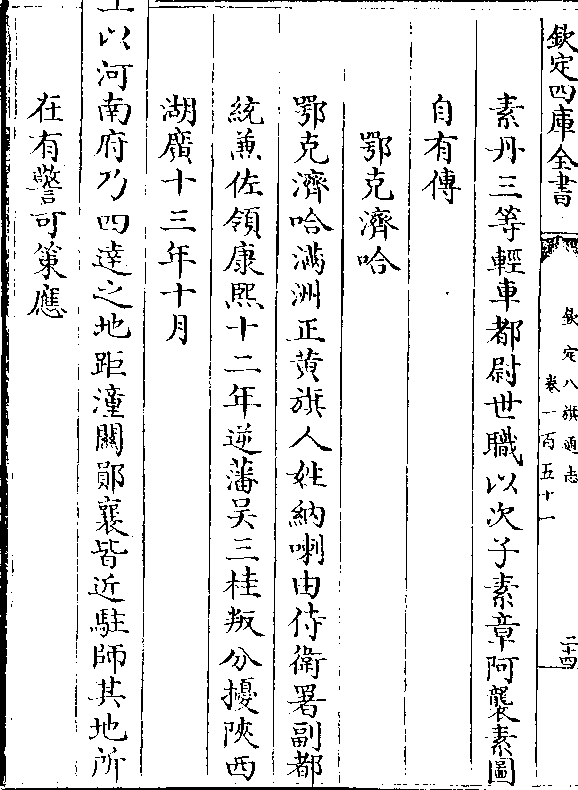 欽定四庫全書
欽定八旗通志
卷一百五十一
二十四
素丹三等輕車都尉世職以次子素章阿襲素圖
自有傳
鄂克濟哈
鄂克濟哈滿洲正黃旗人姓納喇由侍衛署副都
統兼佐領康熙十二年逆藩吳三桂叛分擾陝西
湖廣十三年十月
上以河南府乃四達之地距潼關鄖襄皆近駐師其地所
在有警可策應